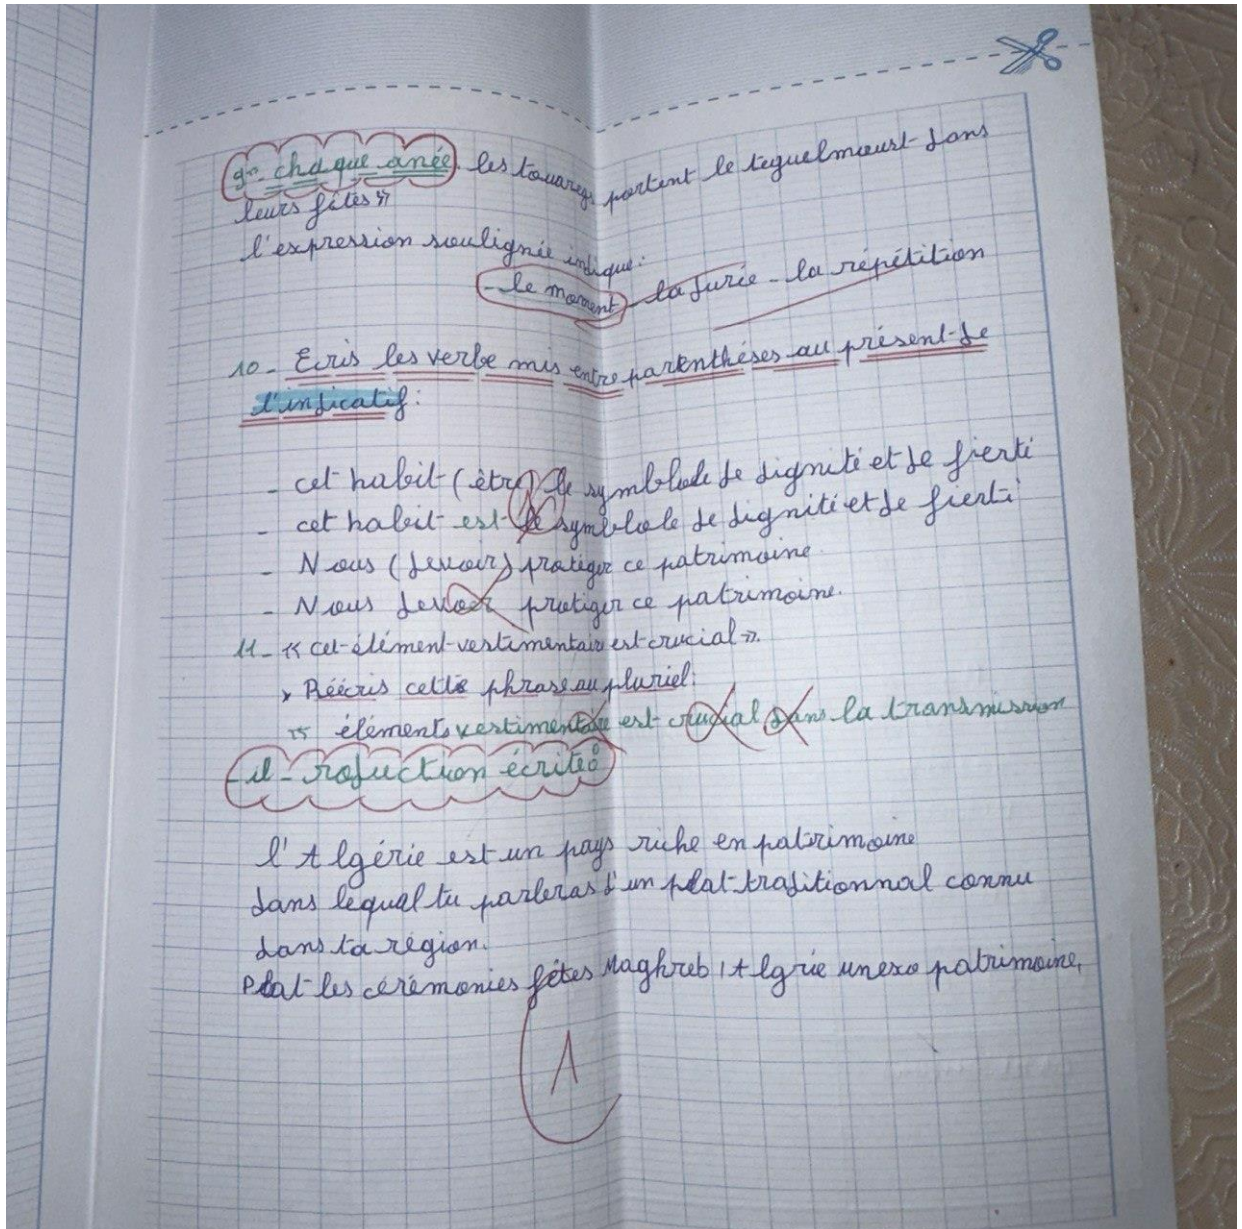 9- chaque anée, les touaregs portent le teguelmoust dans
leurs fêtes »
l'expression soulignée indique:
- le moment - la durée - la répétition
10 - Ecris les verbe mis entre parenthéses au présent de
l'indicatif:
- cet habit (être) le symblole de dignité et de fierté
- cet habit est le symblole de dignité et de fierté
- Nous (devoir) protéger ce patrimoine
- Nous devoir protéger ce patrimoine.
11 - « cet élément vestimentaire est crucial ».
Réécris cette phrase au pluriel:
éléments vestimentaire est crucial dans la transmission
- il - roduction écrite:
l'Algérie est un pays riche en patrimoine
dans lequal tu parleras d'un plat traditionnal connu
dans ta région.
Plat les cérémonies fêtes Maghreb Algrie unexo patrimoine,
1